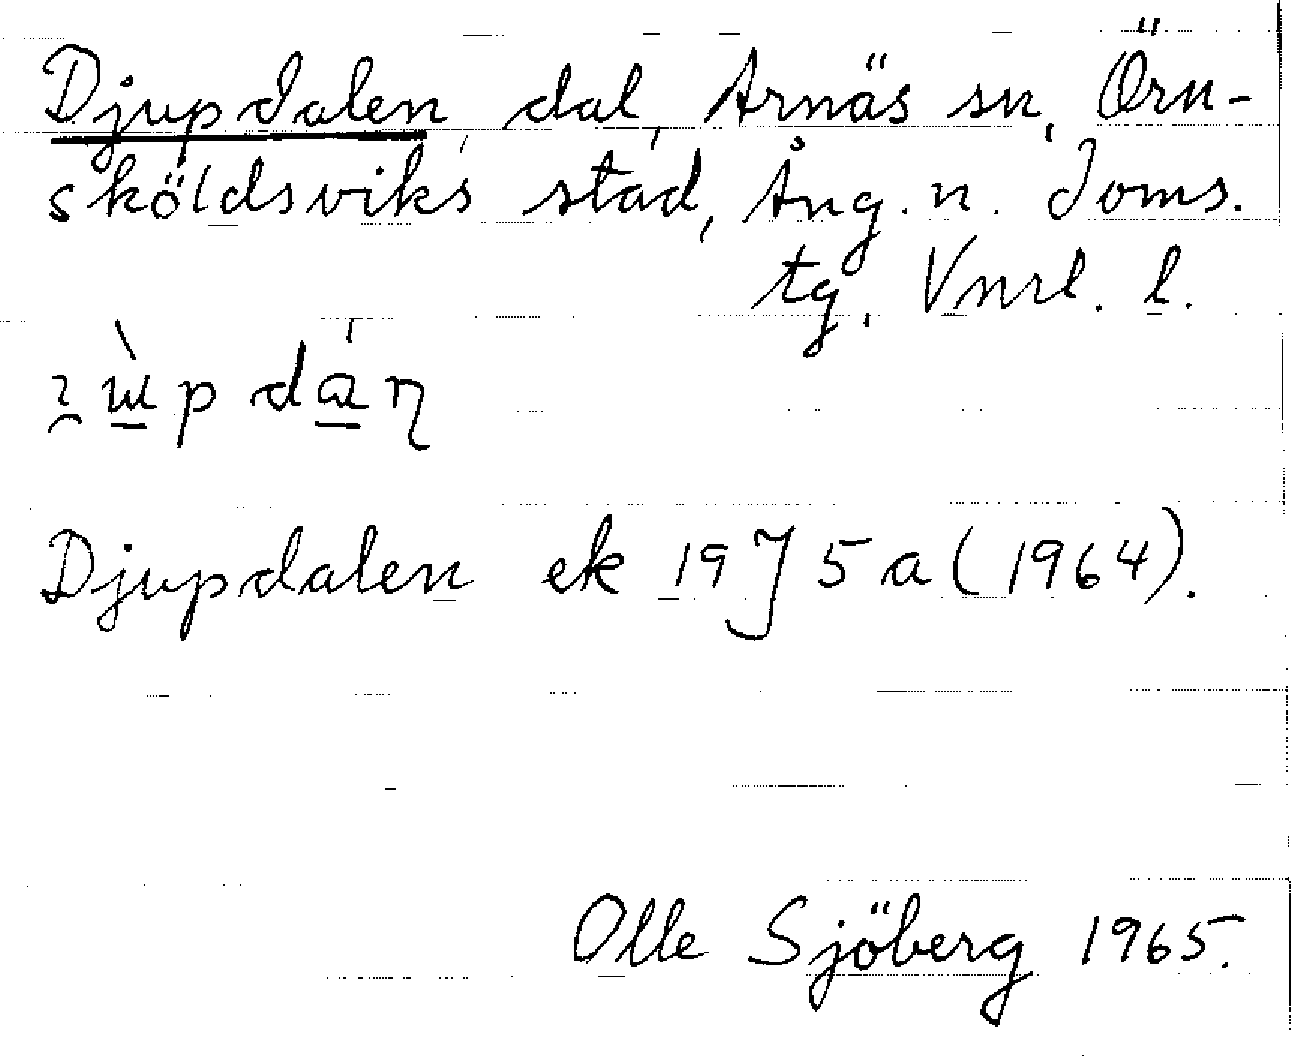 Djupdalen, dal, Arnäs sn, Örn-
sköldsviks stad, Ång. n. Doms.
tg, Vnrl. l.
Djupdalen ek 19 J 5 a (1964).
Olle Sjöberg 1965.